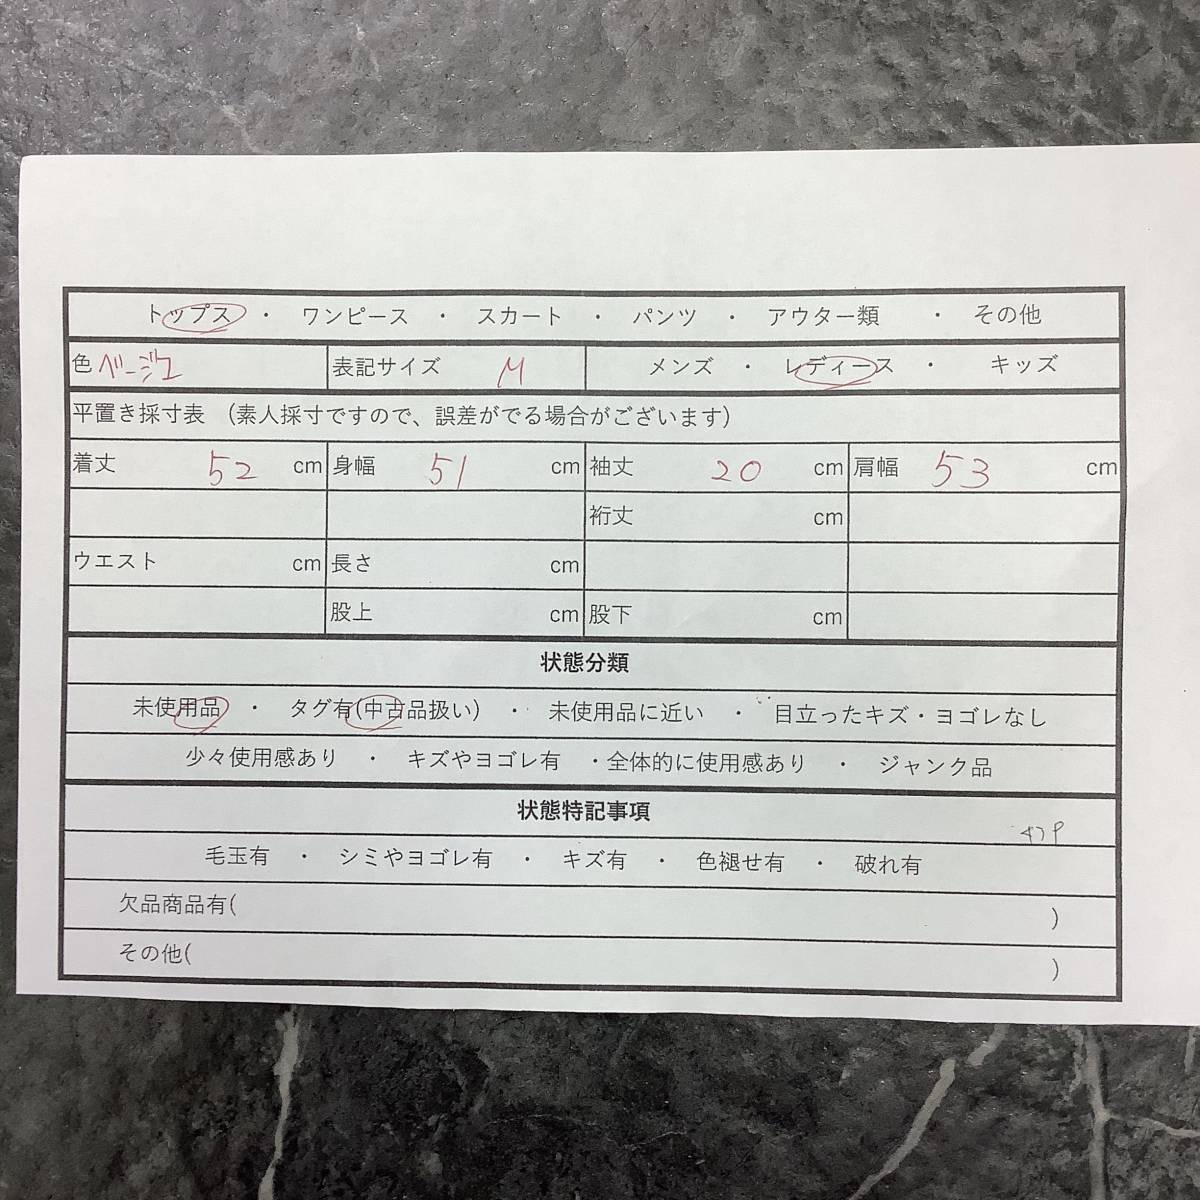 トップス ・ ワンピース ・ スカート ・ パンツ ・ アウター類 ・ その他
色 ベージュ 表記サイズ M メンズ ・ レディース ・ キッズ
平置き採寸表 (素人採寸ですので、誤差がでる場合がございます)
着丈 52 cm 身幅 51 cm 袖丈 20 cm 肩幅 53 cm
裄丈 cm
ウエスト cm 長さ cm
股上 cm 股下 cm
状態分類
未使用品 ・ タグ有(中古品扱い) ・ 未使用品に近い ・ 目立ったキズ・ヨゴレなし
少々使用感あり ・ キズやヨゴレ有 ・全体的に使用感あり ・ ジャンク品
状態特記事項
毛玉有 ・ シミやヨゴレ有 ・ キズ有 ・ 色褪せ有 ・ 破れ有
欠品商品有( )
その他( )